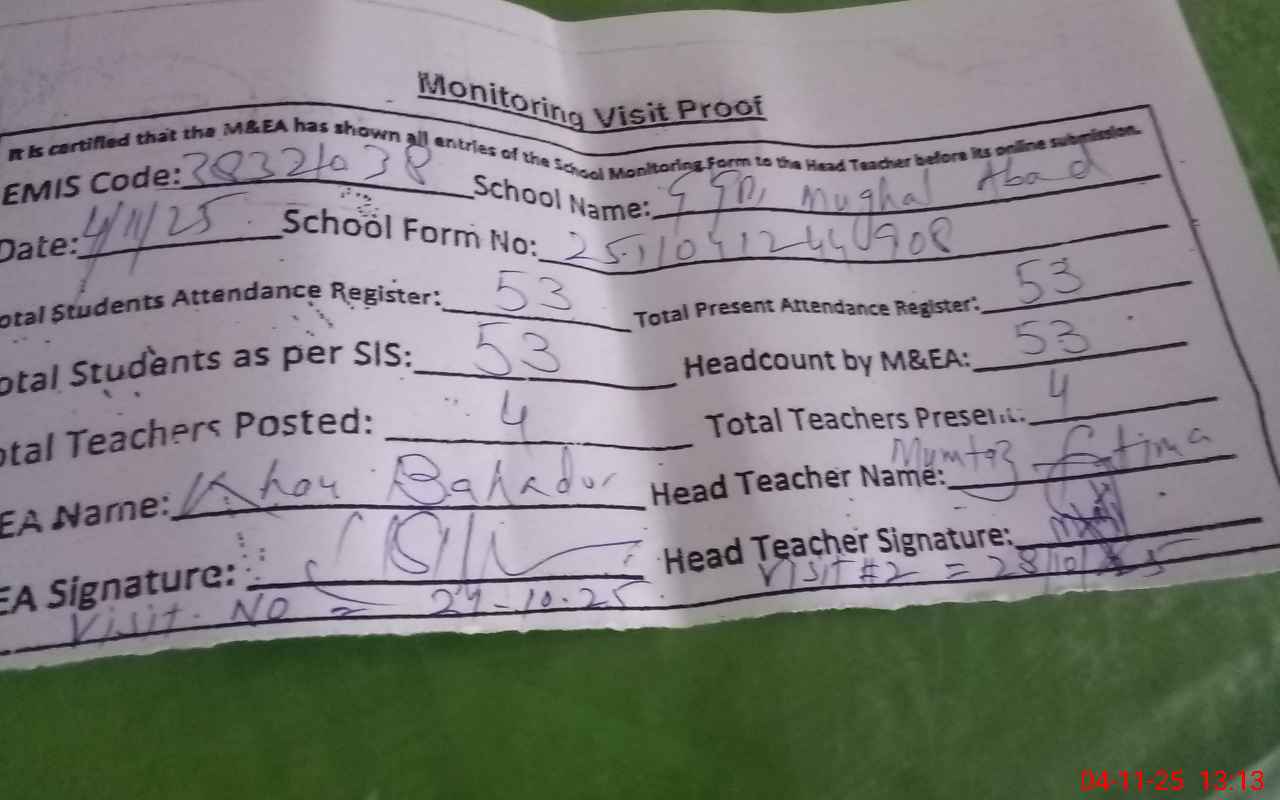 Monitoring Visit Proof
It is certified that the M&EA has shown all entries of the School Monitoring Form to the Head Teacher before its online submission.
EMIS Code: 38321038 School Name: Mughal Abad
Date: 4/11/25 School Form No:
otal Students Attendance Register: 53 Total Present Attendance Register: 53
otal Students as per SIS: 53 Headcount by M&EA: 53
otal Teachers Posted: 4 Total Teachers Present: 4
EA Name: Khan Bahadur Head Teacher Name: Mumtaz Fatima
EA Signature: Head Teacher Signature:
Visit NO = 24-10-25 Visit #2 = 28/10/25
04-11-25 13:13